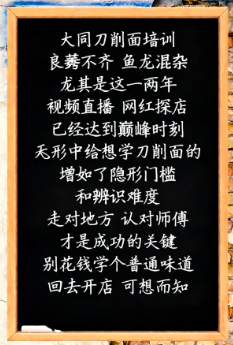 大同刀削面培训
良莠不齐 鱼龙混杂
龙其是这一两年
视频直播 网红探店
已经达到巅峰时刻
天形中给想学刀削面的
增如了隐形门槛
和辨识难度
走对地方 认对师傅
才是成功的关键
别花钱学个普通味道
回去开店 可想而知